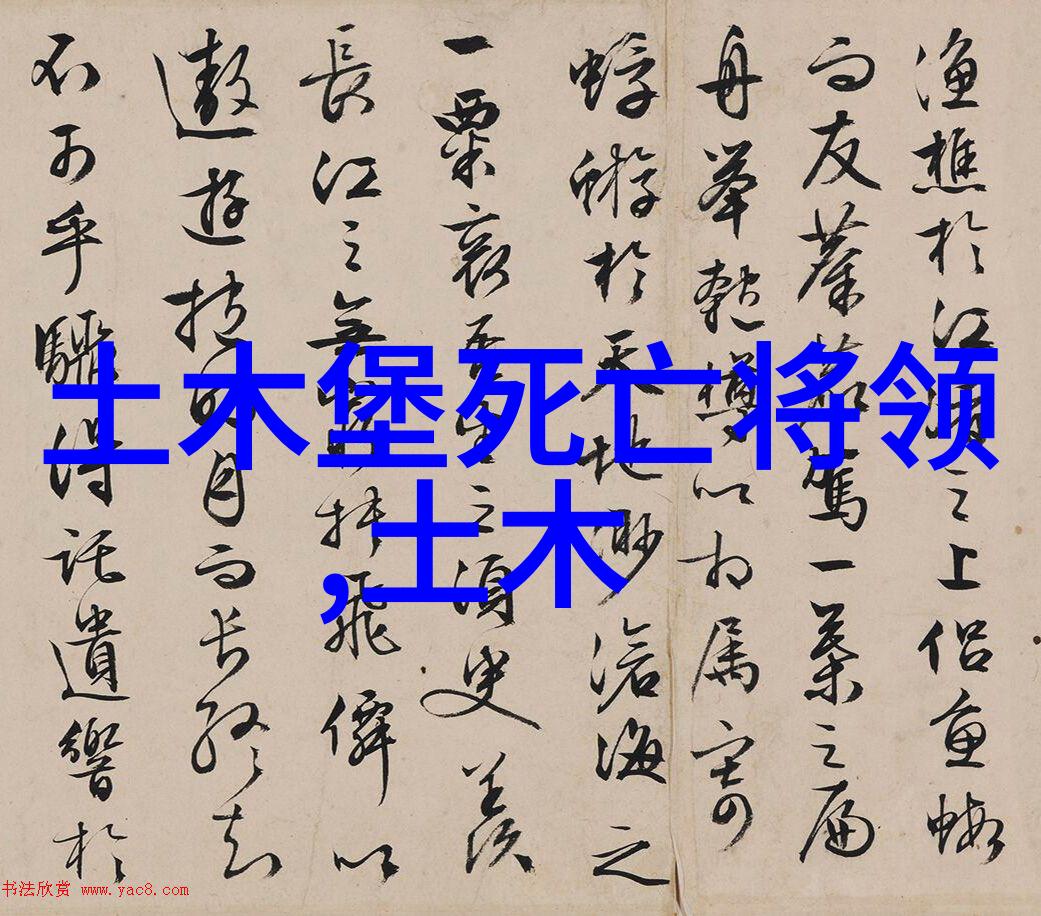 渔樵於江渚之上侣鱼蝦
而友麋鹿駕一葉之扁
舟舉匏樽以相属寄
蜉蝣於天地渺滄海之
一粟哀吾生之須臾羡
長江之無窮挟飛僊以
遨遊抱明月而长终知
不可乎驟得託遺響於
土木堡死亡将领
,土木
书法欣赏 www.yac8.com